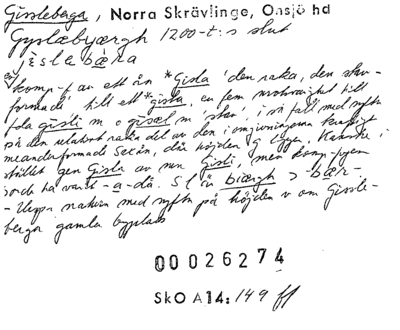 Gissleberga, Norra Skrävlinge, Onsjö hd
Gyslæbyærgh 1200-t:s slut
jɛslabæra
komp-f av ett ån *Gisla 'den raka, den stav-
formade' till ett *gisla, en fem motsvarighet till
fda gisli m o gisæl m 'stav', i så fall med syftn
på den relativt raka del av den i omgivningarna kraftigt
meanderformade Saxån, där höjden G ligger. Kanske i
stället gen Gisla av mn Gisli, men komp-fogen
borde ha varit -a- då. S l är biærgh > -bær-.
- Uppr namn med syftn på höjden v om Gissle-
berga gamla byplats
00026274
SkO A14: 149 ff